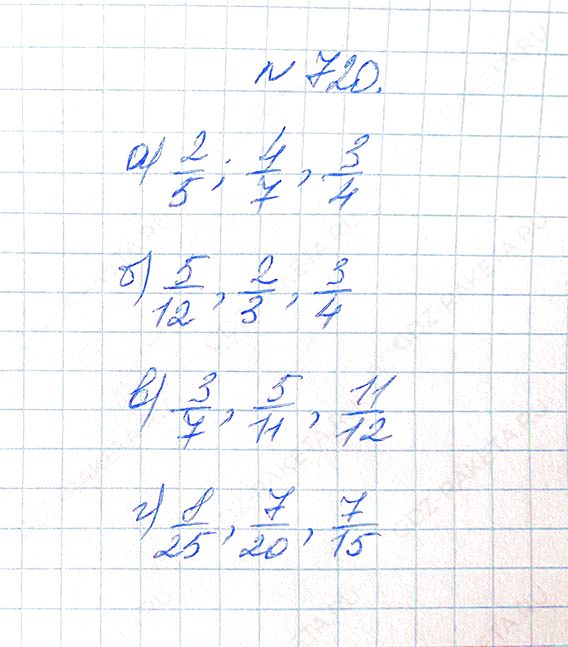 № 720.
а) 2/5; 4/7, 3/4
б) 5/12, 2/3, 3/4
в) 3/7, 5/11, 11/12
г) 8/25, 7/20, 7/15